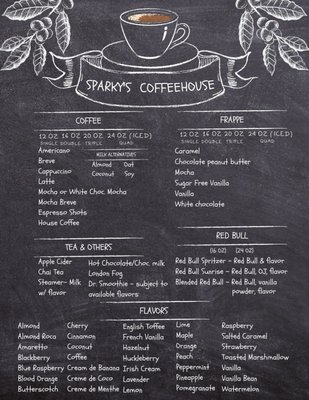 SPARKY'S COFFEEHOUSE
COFFEE
12 OZ 16 OZ 20 OZ 24 OZ (ICED)
SINGLE DOUBLE TRIPLE QUAD
Americano
Breve
Cappuccino
Latte
Mocha or White Choc. Mocha
Mocha Breve
Espresso Shots
House Coffee
MILK ALTERNATIVES
Almond Oat
Coconut Soy
FRAPPE
12 OZ 16 OZ 20 OZ 24 OZ (ICED)
SINGLE DOUBLE TRIPLE QUAD
Caramel
Chocolate peanut butter
Mocha
Sugar Free Vanilla
Vanilla
White chocolate
TEA & OTHERS
Apple Cider
Chai Tea
Steamer- Milk
w/ flavor
Hot Chocolate/Choc. milk
London Fog
Dr. Smoothie - subject to
available flavors
RED BULL
(16 OZ) (24 OZ)
Red Bull Spritzer - Red Bull & flavor
Red Bull Sunrise - Red Bull, OJ, flavor
Blended Red Bull - Red Bull, vanilla
powder, flavor
FLAVORS
Almond
Almond Roca
Amaretto
Blackberry
Blue Raspberry
Blood Orange
Butterscotch
Cherry
Cinnamon
Coconut
Coffee
Cream de Banana
Creme de Coco
Creme de Menthe
English Toffee
French Vanilla
Hazelnut
Huckleberry
Irish Cream
Lavender
Lemon
Lime
Maple
Orange
Peach
Peppermint
Pineapple
Pomegranate
Raspberry
Salted Caramel
Strawberry
Toasted Marshmallow
Vanilla
Vanilla Bean
Watermelon